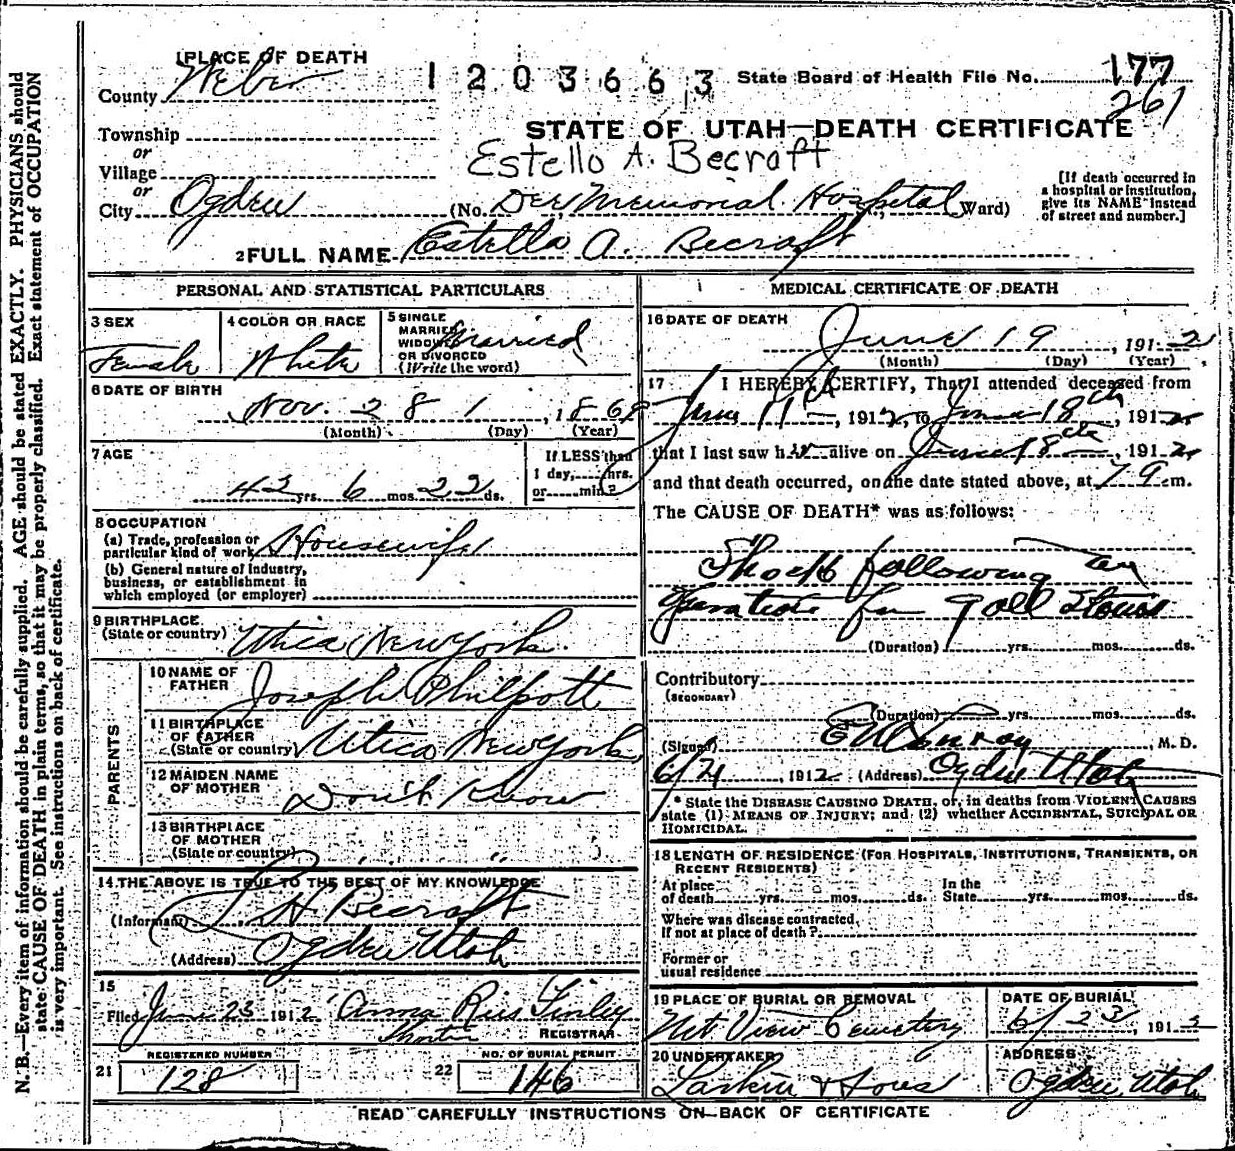 1 PLACE OF DEATH
1203663
State Board of Health File No. 177
261
County Weber
STATE OF UTAH—DEATH CERTIFICATE
Township
or
Village
or
City Ogden
Estello A. Becraft
(No. Dee Memorial Hospital Ward)
[If death occurred in
a hospital or institution,
give its NAME instead
of street and number.]
2 FULL NAME Estella A. Becraft
PERSONAL AND STATISTICAL PARTICULARS
3 SEX
Female
4 COLOR OR RACE
White
5 SINGLE
MARRIED
WIDOWED
OR DIVORCED
(Write the word)
Married
6 DATE OF BIRTH
Nov. 28 1, 1868
(Month) (Day) (Year)
7 AGE
43 yrs. 6 mos. 22 ds.
If LESS than
1 day, hrs.
or min.?
8 OCCUPATION
(a) Trade, profession or
particular kind of work Housewife
(b) General nature of industry,
business, or establishment in
which employed (or employer)
9 BIRTHPLACE
(State or country) Utica New York.
PARENTS
10 NAME OF
FATHER Joseph Philpott
11 BIRTHPLACE
OF FATHER
(State or country) Utica New York
12 MAIDEN NAME
OF MOTHER Don't Know
13 BIRTHPLACE
OF MOTHER
(State or country) " " "
14 THE ABOVE IS TRUE TO THE BEST OF MY KNOWLEDGE
(Informant) H Becraft
(Address) Ogden Utah
15
Filed June 23 1912 Anna Finley
REGISTRAR
REGISTERED NUMBER
21 128
NO. OF BURIAL PERMIT
22 146
MEDICAL CERTIFICATE OF DEATH
16 DATE OF DEATH
June 19, 1912
(Month) (Day) (Year)
17 I HEREBY CERTIFY, That I attended deceased from
June 11th, 1912, to June 18th, 1912
that I last saw her alive on June 18th, 1912
and that death occurred, on the date stated above, at 7 m.
The CAUSE OF DEATH* was as follows:
Shock following an
Operation for gall stones
(Duration) yrs. mos. ds.
Contributory
(SECONDARY)
(Duration) yrs. mos. ds.
(Signed) Conroy, M. D.
6/21, 1912 (Address) Ogden Utah
* State the DISEASE CAUSING DEATH, or, in deaths from VIOLENT CAUSES
state (1) MEANS OF INJURY; and (2) whether ACCIDENTAL, SUICIDAL OR
HOMICIDAL.
18 LENGTH OF RESIDENCE (FOR HOSPITALS, INSTITUTIONS, TRANSIENTS, OR
RECENT RESIDENTS)
At place
of death yrs. mos. ds.
In the
State yrs. mos. ds.
Where was disease contracted,
If not at place of death?
Former or
usual residence
19 PLACE OF BURIAL OR REMOVAL
Mt View Cemetery
DATE OF BURIAL
6/23, 1912
20 UNDERTAKER
Larkin & Sons
ADDRESS
Ogden Utah
READ CAREFULLY INSTRUCTIONS ON BACK OF CERTIFICATE
N. B.—Every item of information should be carefully supplied. AGE should be stated EXACTLY. PHYSICIANS should
state CAUSE OF DEATH in plain terms, so that it may be properly classified. Exact statement of OCCUPATION
is very important. See instructions on back of certificate.